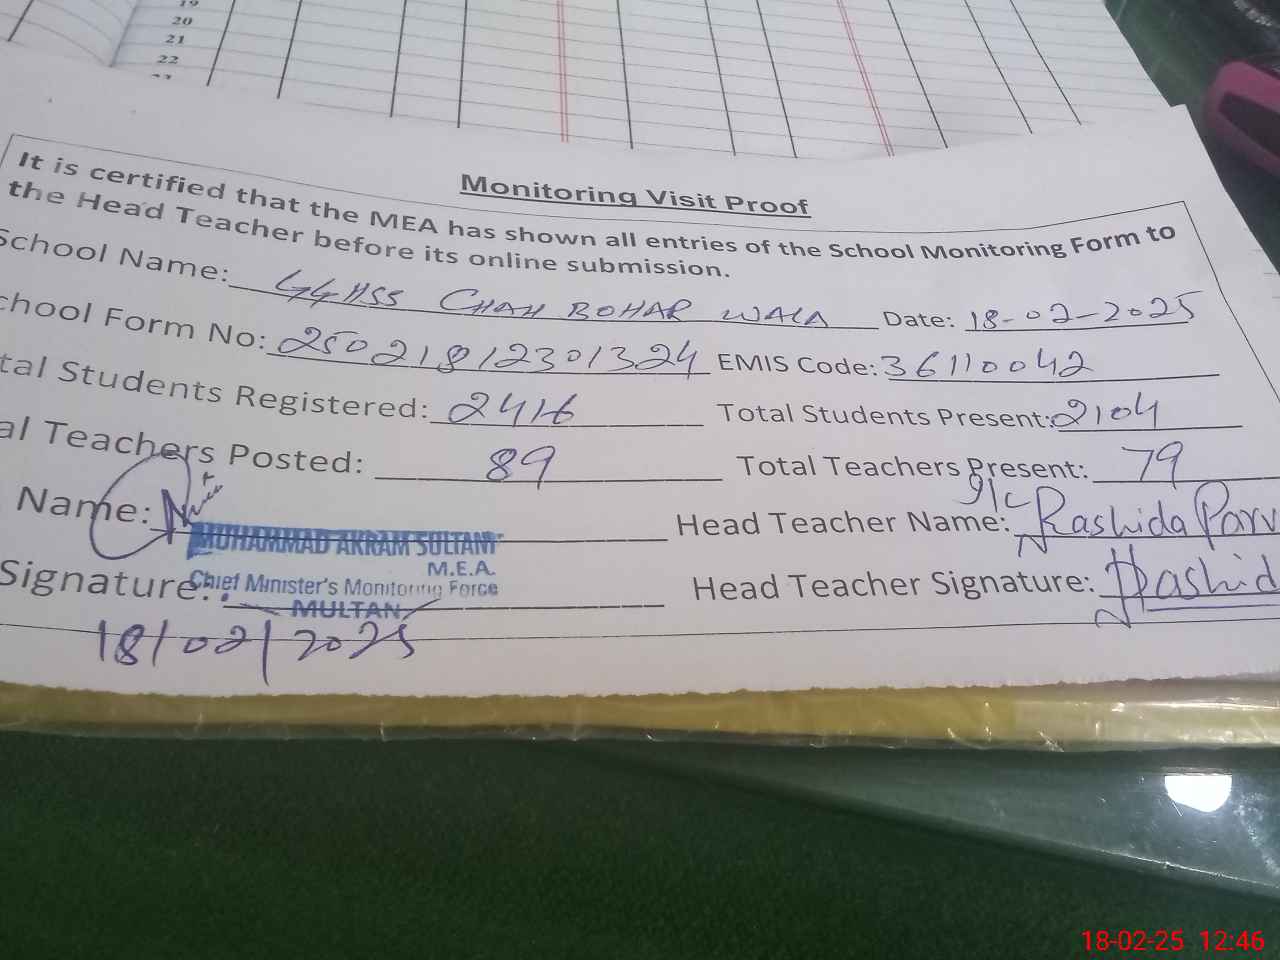 19
20
21
22
Monitoring Visit Proof
It is certified that the MEA has shown all entries of the School Monitoring Form to
the Head Teacher before its online submission.
School Name: GGHSS CHAH BOHAR WALA Date: 18-02-2025
chool Form No: 25021812301324 EMIS Code: 36110042
tal Students Registered: 2416 Total Students Present: 2104
al Teachers Posted: 89 Total Teachers Present: 79
Name: Head Teacher Name: I/C Rashida Parv
MUHAMMAD AKRAM SULTANI
M.E.A.
Signature: Chief Minister's Monitoring Force Head Teacher Signature: Rashid
MULTAN
18/02/2025
18-02-25 12:46